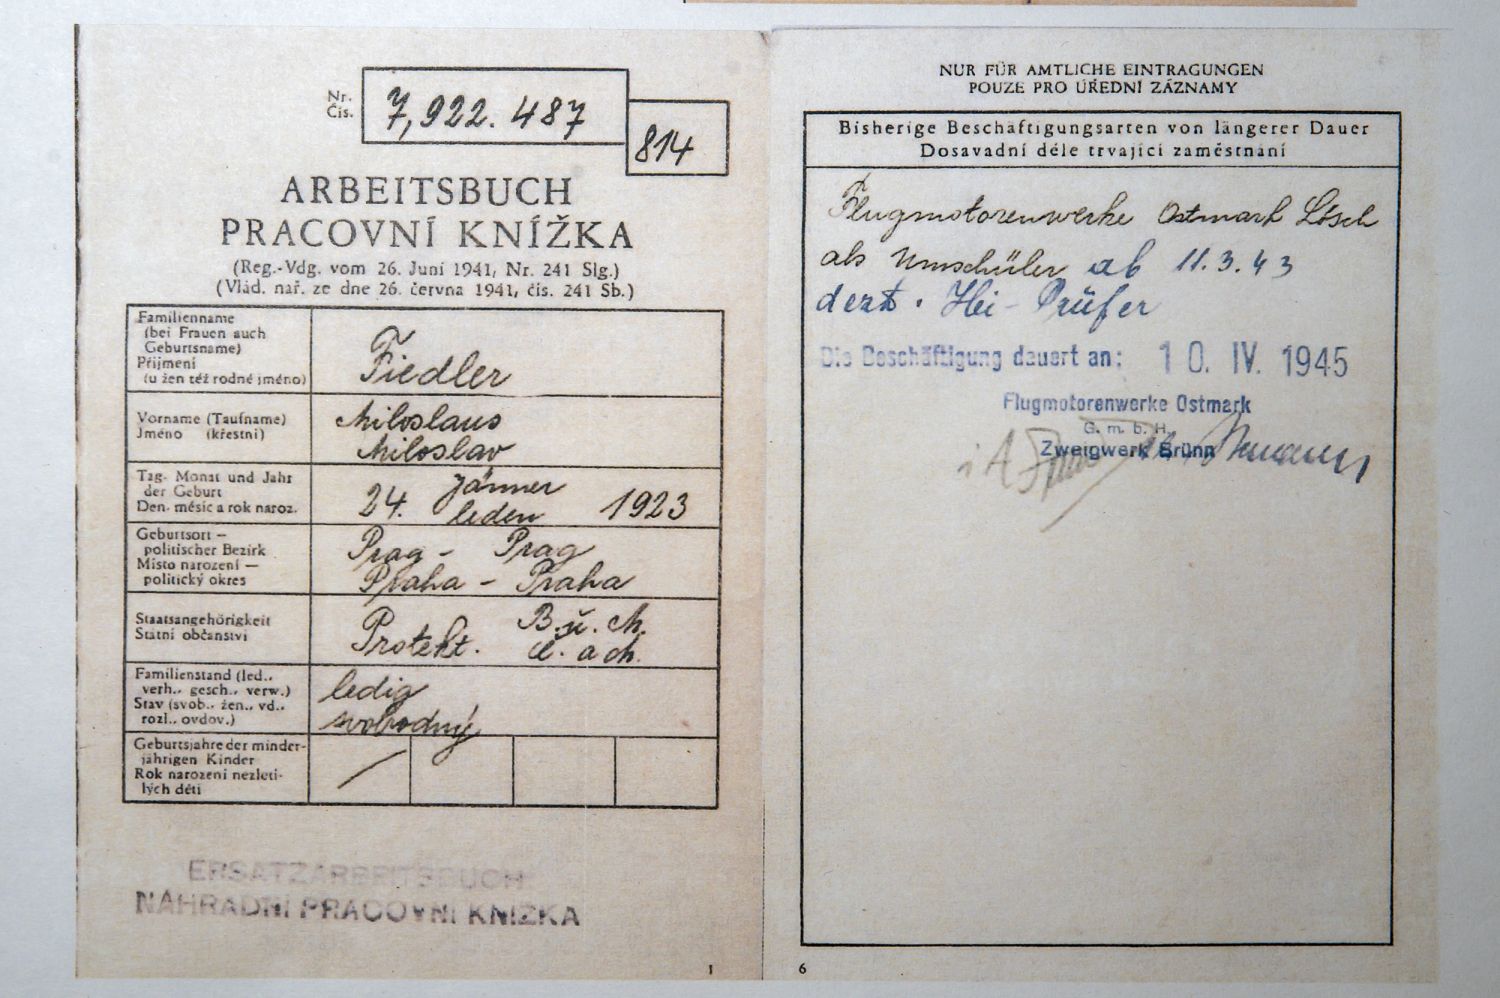 Nr.
Čís.
7,922.487
814
ARBEITSBUCH
PRACOVNÍ KNÍŽKA
(Reg.-Vdg. vom 26. Juni 1941, Nr. 241 Slg.)
(Vlád. nař. ze dne 26. června 1941, čís. 241 Sb.)
Familienname
(bei Frauen auch
Geburtsname)
Příjmení
(u žen též rodné jméno)
Fiedler
Vorname (Taufname)
Jméno (křestní)
Miloslaus
Miloslav
Tag, Monat und Jahr
der Geburt
Den, měsíc a rok naroz.
24. Jänner 1923
leden
Geburtsort —
politischer Bezirk
Místo narození —
politický okres
Prag - Prag
Praha - Praha
Staatsangehörigkeit
Státní občanství
Protekt. B. u. M.
Č. a M.
Familienstand (led.,
verh., gesch., verw.)
Stav (svob., žen., vd.,
rozl., ovdov.)
ledig
svobodný
Geburtsjahre der minder-
jährigen Kinder
Rok narození nezleti-
lých dětí
ERSATZARBEITSBUCH
NÁHRADNÍ PRACOVNÍ KNÍŽKA
1
NUR FÜR AMTLICHE EINTRAGUNGEN
POUZE PRO ÚŘEDNÍ ZÁZNAMY
Bisherige Beschäftigungsarten von längerer Dauer
Dosavadní déle trvající zaměstnání
Flugmotorenwerke Ostmark Lösch
als Umschüler ab 11.3.43
derzt. Hei-Prüfer
Die Beschäftigung dauert an: 10. IV. 1945
Flugmotorenwerke Ostmark
G. m. b. H.
Zweigwerk Brünn
i A
6